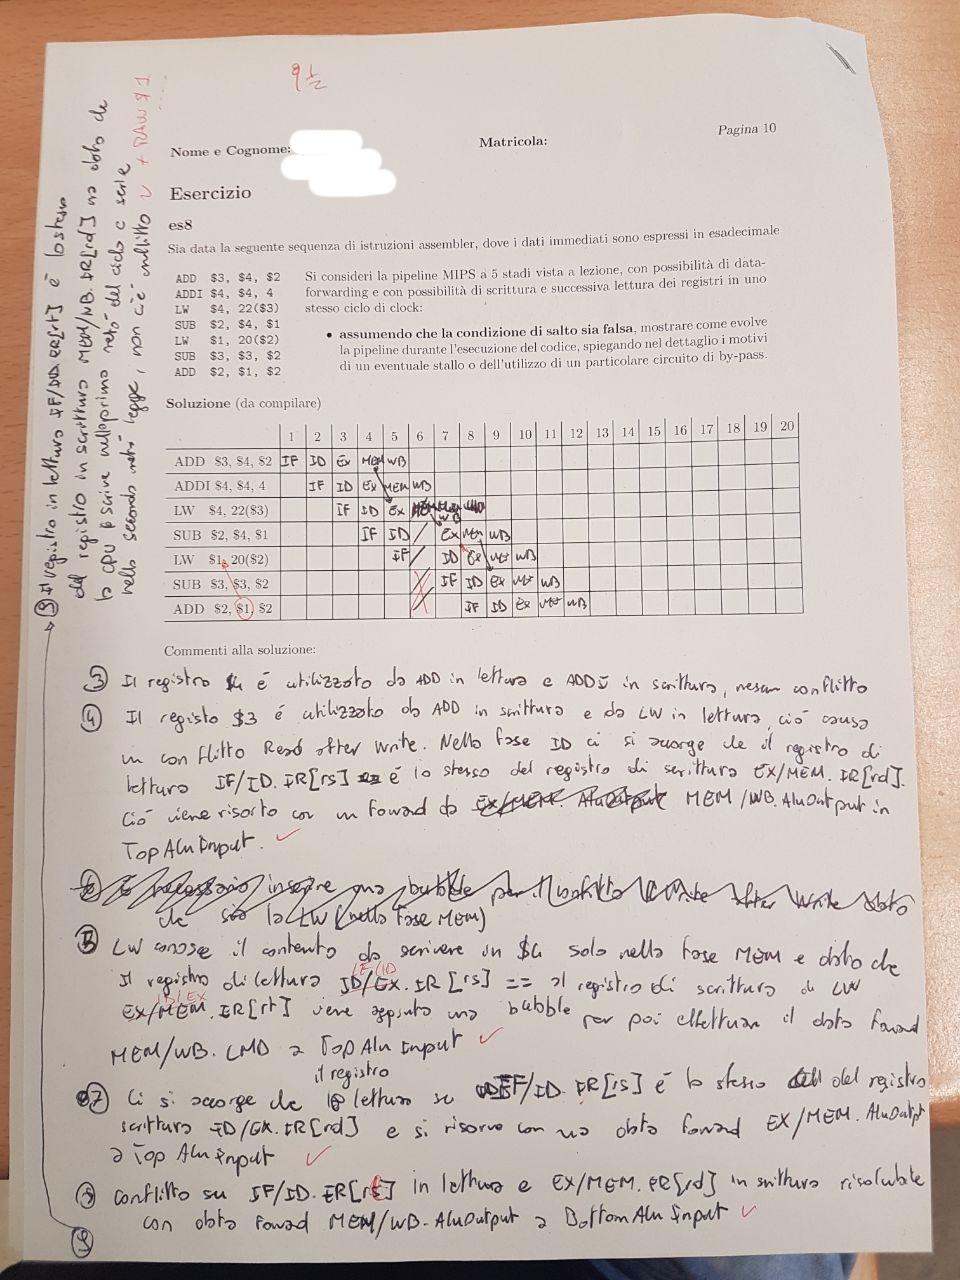 9 1/2
Nome e Cognome:
Matricola:
Pagina 10
Esercizio
es8
Sia data la seguente sequenza di istruzioni assembler, dove i dati immediati sono espressi in esadecimale
ADD $3, $4, $2
ADDI $4, $4, 4
LW $4, 22($3)
SUB $2, $4, $1
LW $1, 20($2)
SUB $3, $3, $2
ADD $2, $1, $2
Si consideri la pipeline MIPS a 5 stadi vista a lezione, con possibilità di data-
forwarding e con possibilità di scrittura e successiva lettura dei registri in uno
stesso ciclo di clock:
• assumendo che la condizione di salto sia falsa, mostrare come evolve
la pipeline durante l'esecuzione del codice, spiegando nel dettaglio i motivi
di un eventuale stallo o dell'utilizzo di un particolare circuito di by-pass.
Soluzione (da compilare)
1 2 3 4 5 6 7 8 9 10 11 12 13 14 15 16 17 18 19 20
ADD $3, $4, $2 IF ID EX MEM WB
ADDI $4, $4, 4 IF ID EX MEM WB
LW $4, 22($3) IF ID EX WB
SUB $2, $4, $1 IF ID / EX MEM WB
LW $1, 20($2) IF / ID EX MEM WB
SUB $3, $3, $2 IF ID EX MEM WB
ADD $2, $1, $2 IF ID EX MEM WB
Commenti alla soluzione:
③ Il registro $4 é utilizzato da ADD in lettura e ADDI in scrittura, nessun conflitto
④ Il registo $3 é utilizzato da ADD in scrittura e da LW in lettura, ció causa
un conflitto Read after Write. Nella fase ID ci si accorge che il registro di
lettura IF/ID.IR[rs] é lo stesso del registro di scrittura EX/MEM.IR[rd].
Ció viene risorto con un foward da MEM/WB.AluOutput in
Top Alu Input.
che sia la LW (nella fase MEM)
⑤ LW conosce il contenuto da scrivere in $4 solo nella fase MEM e dato che
IF/ID
Il registro di lettura ID/EX.IR[rs] == al registro di scrittura di LW
ID/EX
EX/MEM.IR[rt] viene aggiunta una bubble per poi effettuare il data foward
MEM/WB.LMD a Top Alu Input
il registro
⑦ Ci si accorge che lettura su IF/ID.IR[rs] é lo stesso del registro
scrittura ID/EX.IR[rd] e si risorve con un data foward EX/MEM.AluOutput
a Top Alu Input
⑧ conflitto su IF/ID.IR[rt] in lettura e EX/MEM.IR[rd] in scrittura risolubile
con data foward MEM/WB.AluOutput a Bottom Alu Input
⑨ Il registro in lettura IF/ID.IR[rt] é lo stesso
del registro in scrittura MEM/WB.IR[rd] ma dato che
la CPU scrive nella prima metá del ciclo e
nella seconda metá legge, non c'é conflitto + RAW $1